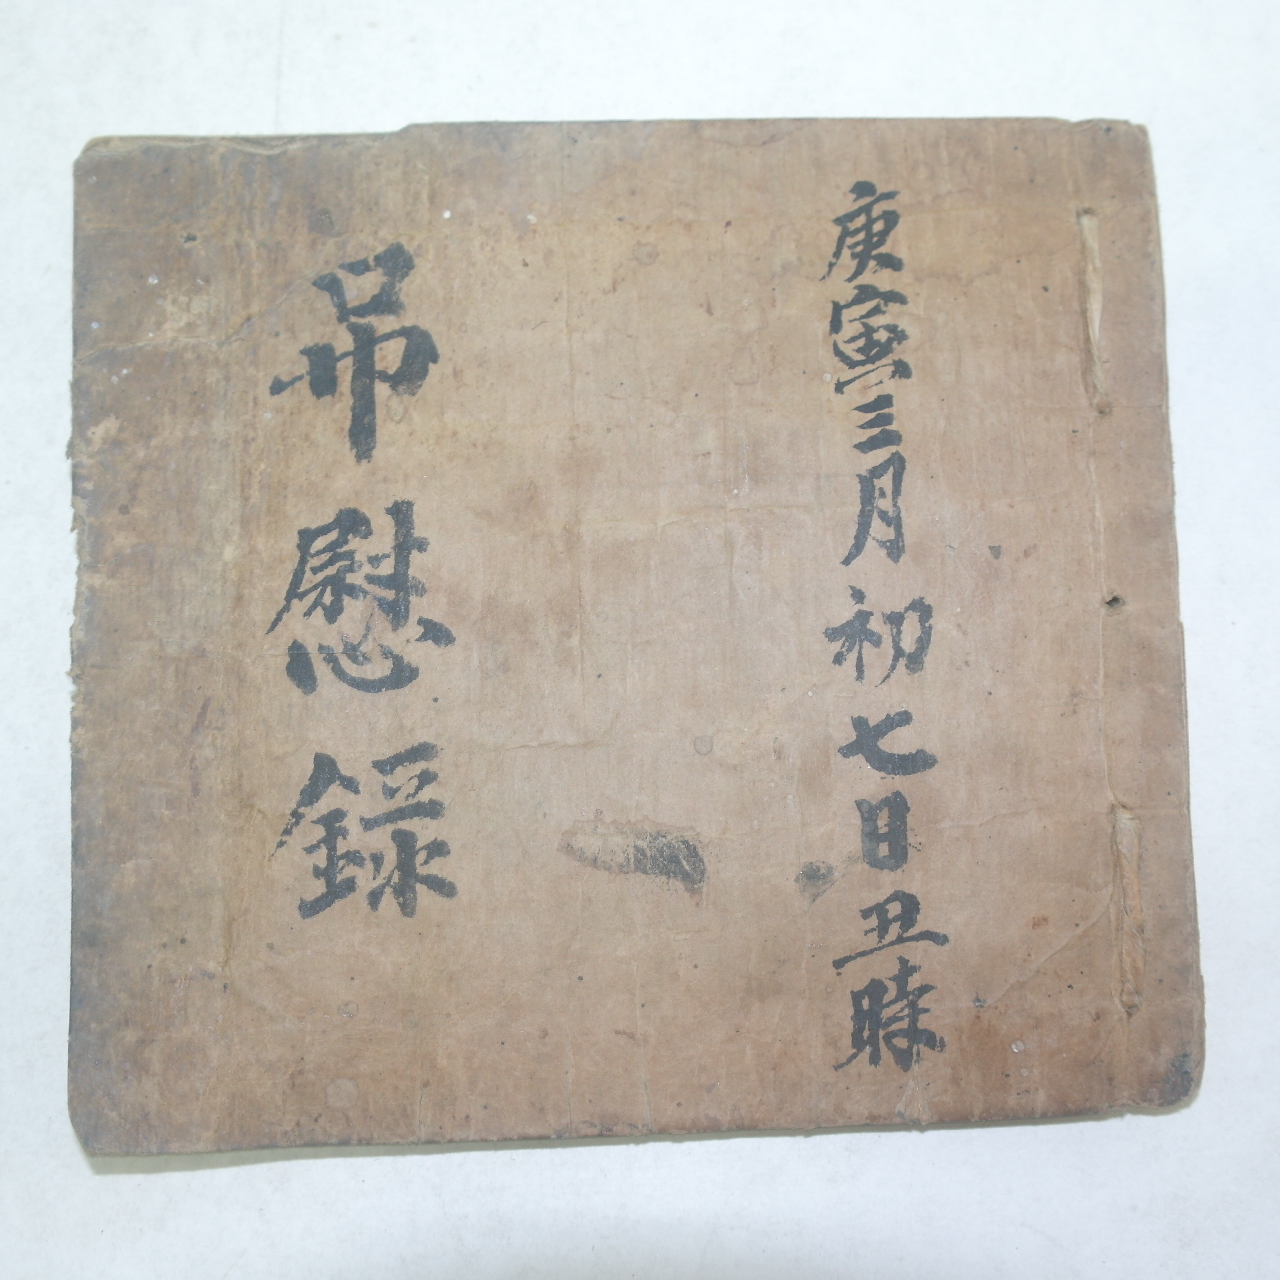 庚寅三月初七日丑時
吊慰錄